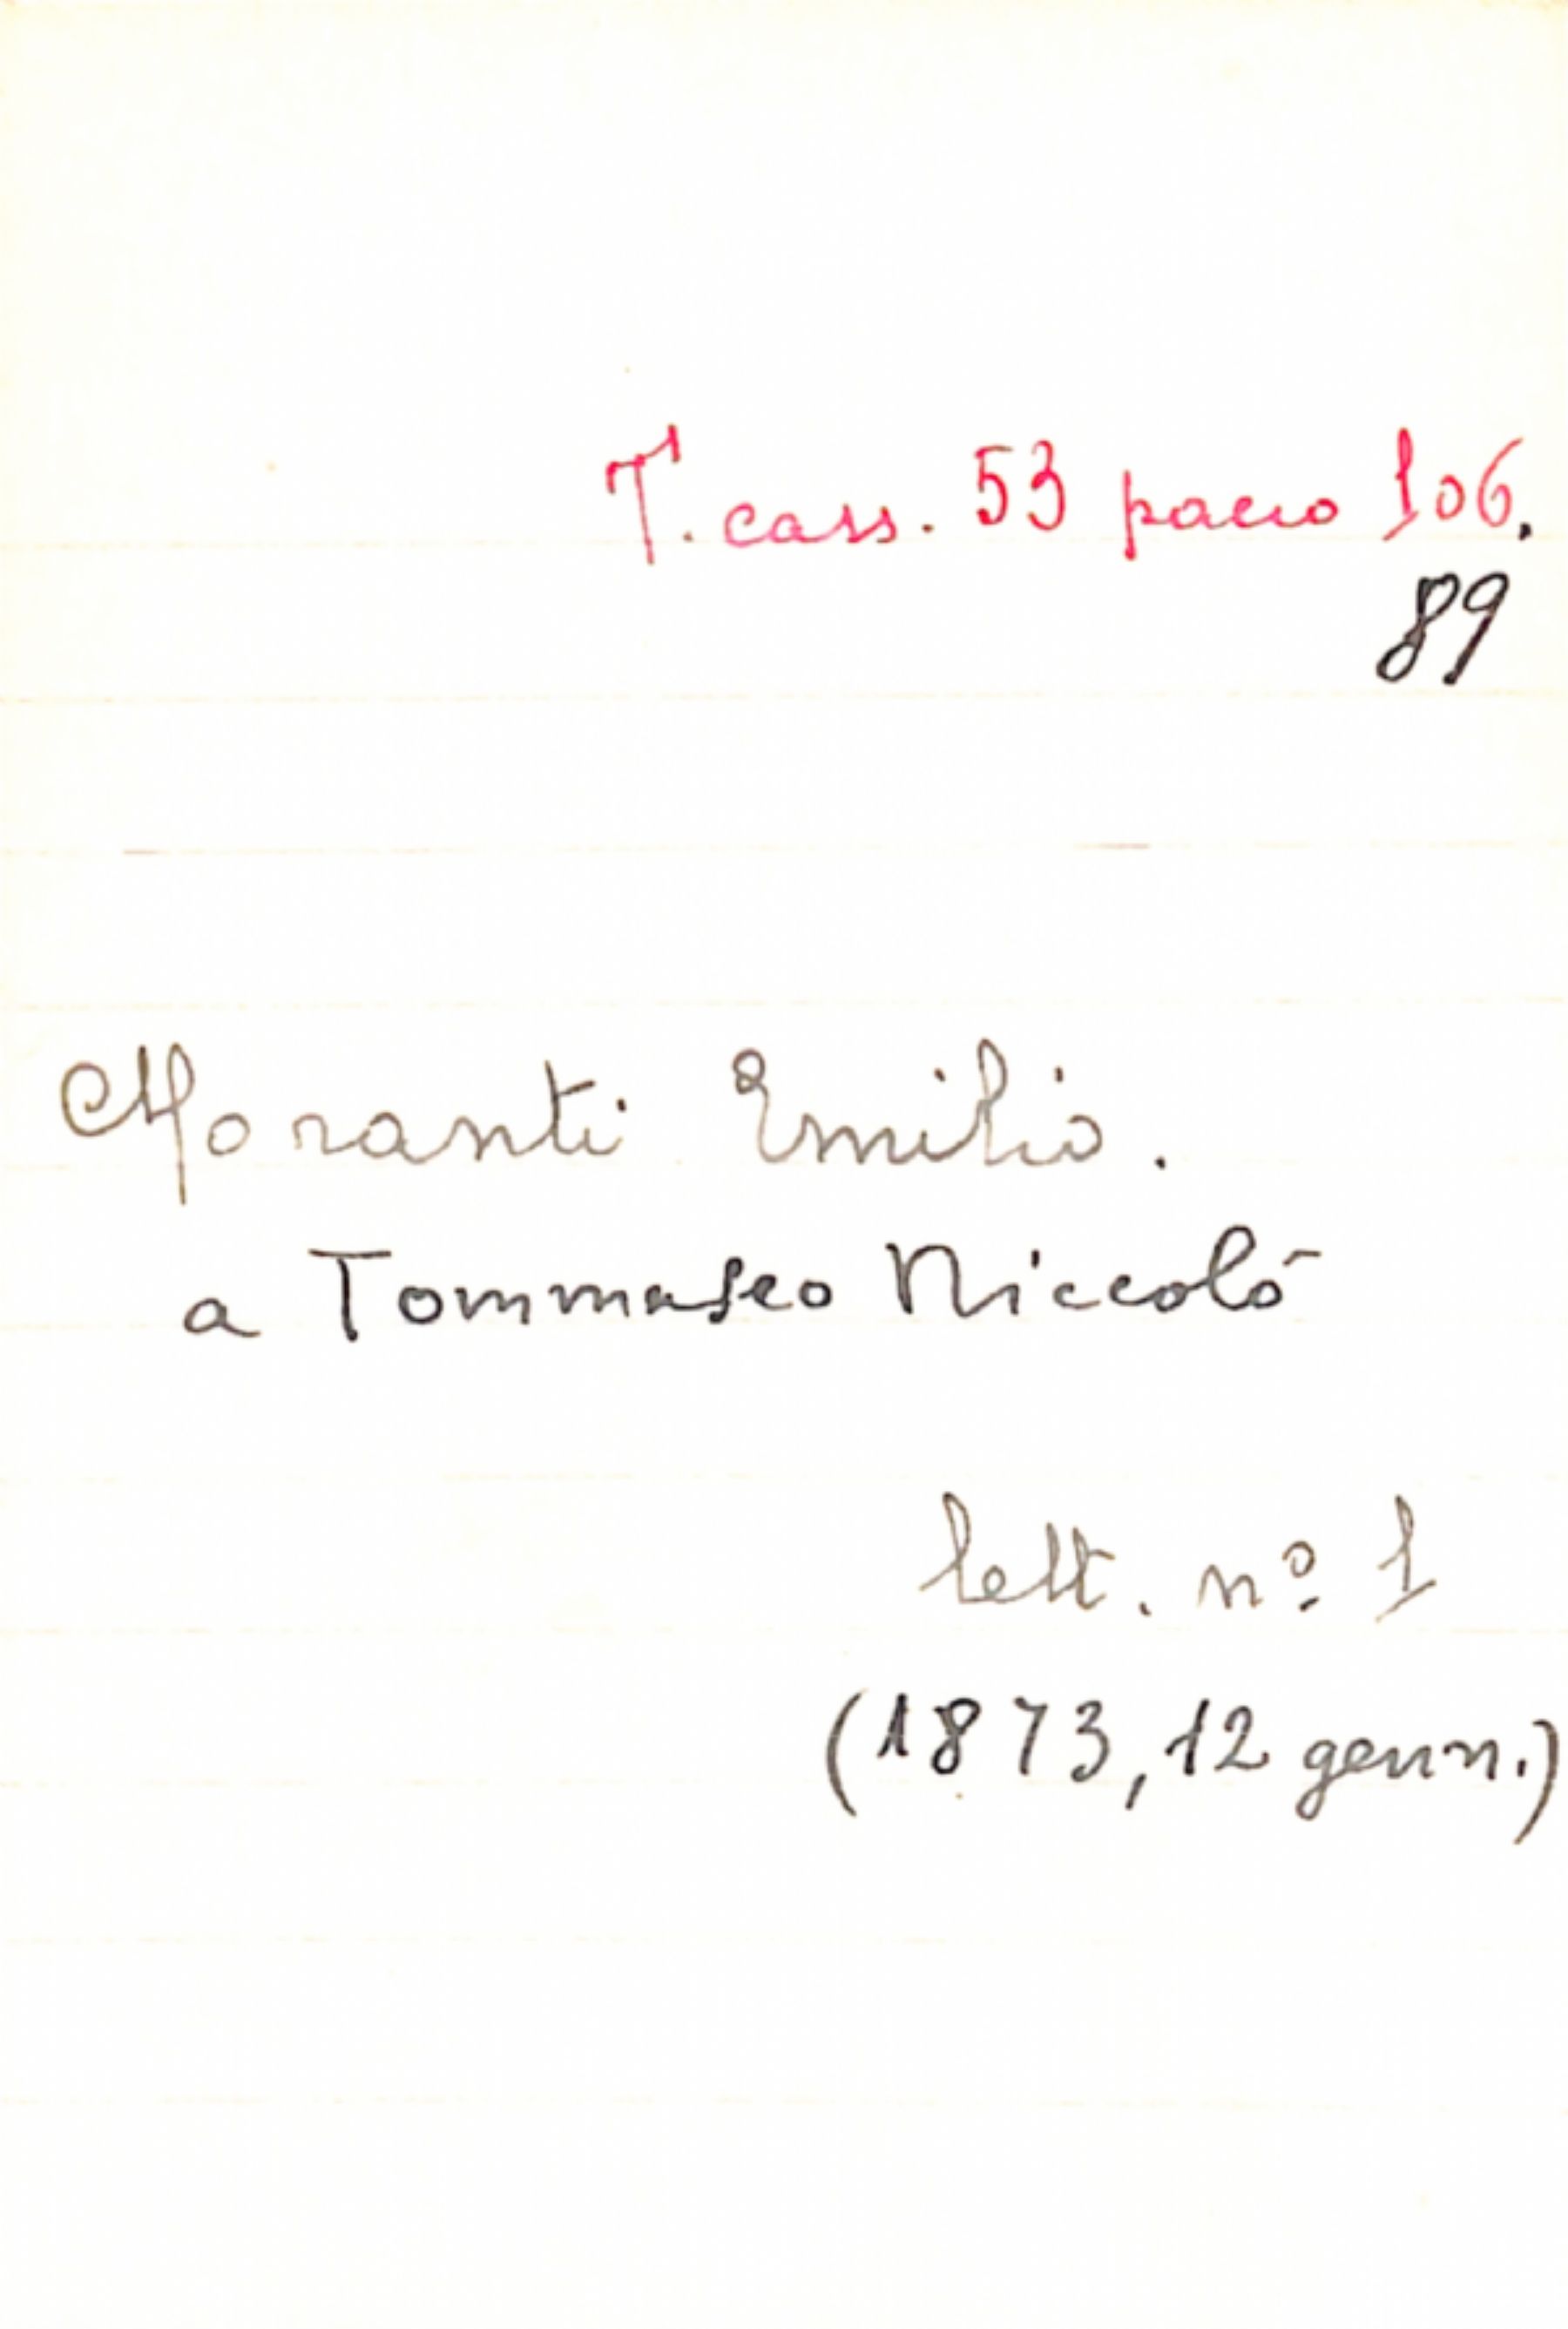 T. cass. 53 pacco 106.
89
Moranti Emilio.
a Tommaseo Niccolò
lett. nº 1
(1873, 12 genn.)